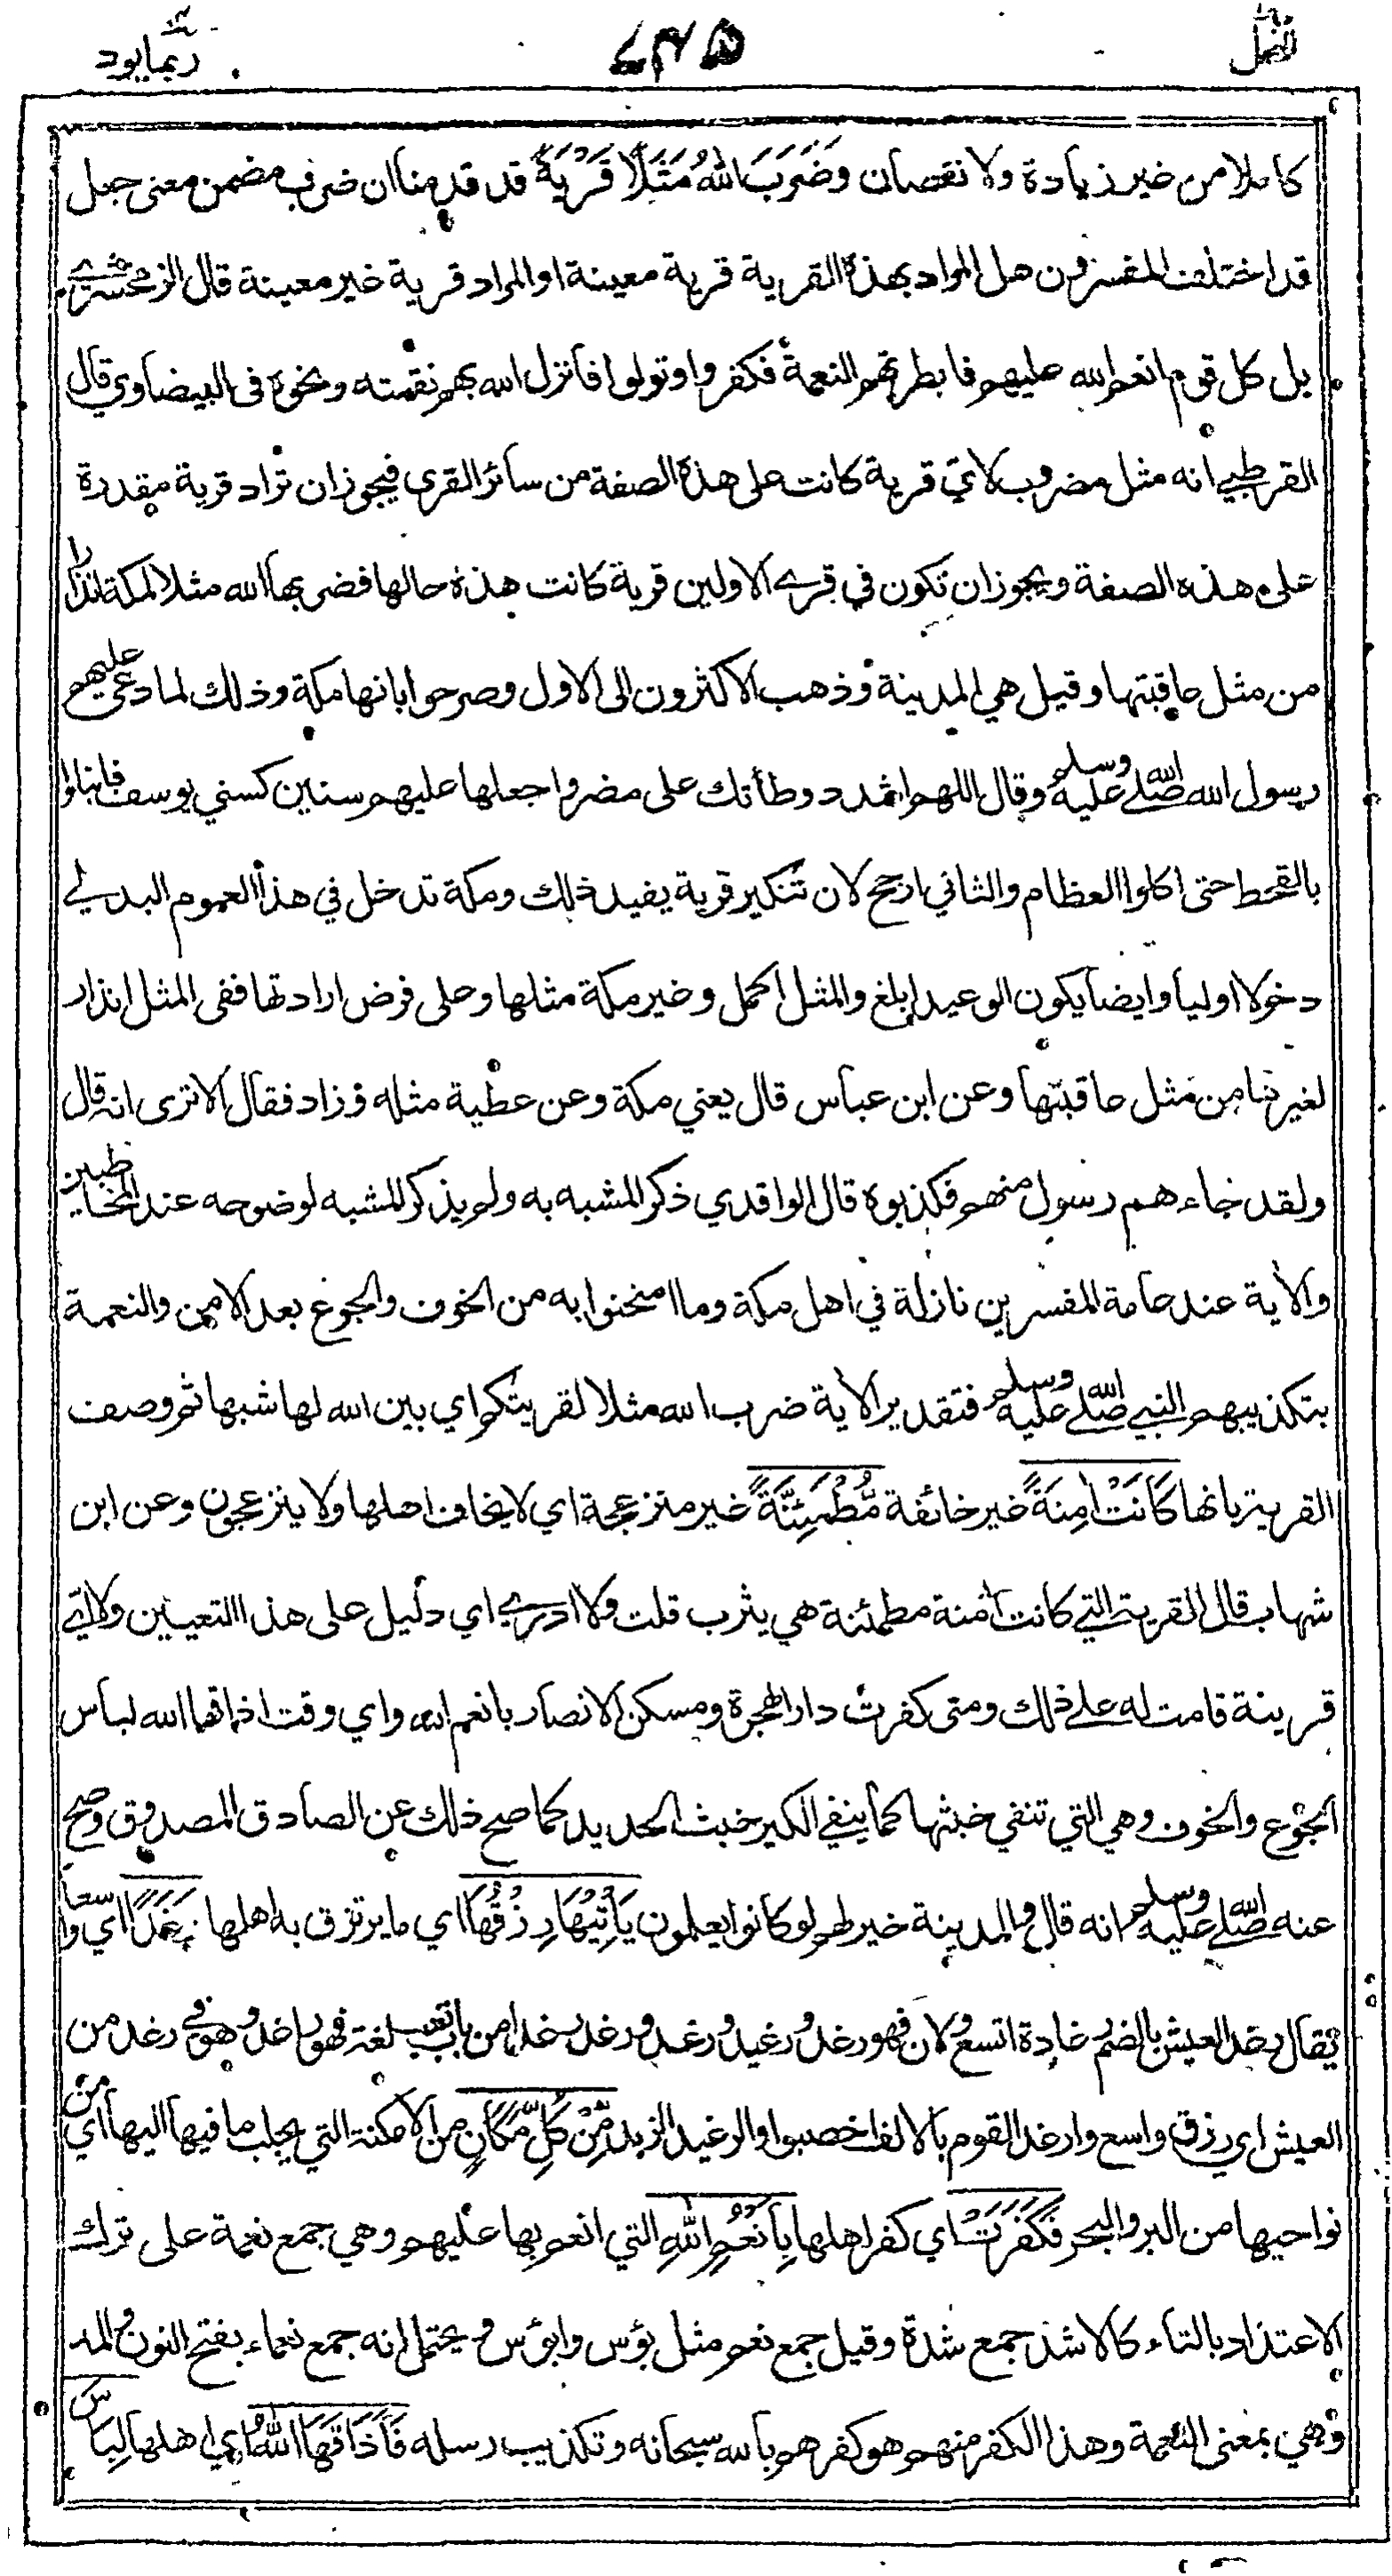 النحل ٢٣٥ ربما يود
كاملا من غير زيادة ولا نقصان وَضَرَبَ اللّٰهُ مَثَلًا قَرْيَةً قد قدمنا ان ضرب مضمن معنى جعل
قد اختلف المفسرون هل المراد بهذه القرية قرية معينة او المراد قرية غير معينة قال الزمخشري
بل كل قوم انعم الله عليهم فابطرتهم النعمة فكفروا وتولوا فانزل الله بهم نقمته ونحوه فى البيضاوي قال
القرطبي انه مثل مضروب لاي قرية كانت على هذه الصفة من سائر القرى فيجوز ان تراد قرية مقدرة
على هذه الصفة ويجوز ان تكون في قرى الاولين قرية كانت هذه حالها فضرب بها الله مثلا لمكة انذارا
من مثل عاقبتها وقيل هي المدينة وذهب الاكثرون الى الاول وصرحوا بانها مكة وذلك لما دعى عليهم
رسول الله صلى الله عليه وسلم وقال اللهم اشدد وطأتك على مضر واجعلها عليهم سنين كسني يوسف فابتلوا
بالقحط حتى اكلوا العظام والثاني ارجح لان تنكير قرية يفيد ذلك ومكة تدخل في هذا العموم البدلي
دخولا اوليا وايضا يكون الوعيد ابلغ والمثل اكمل وغير مكة مثلها وعلى فرض ارادتها ففى المثل انذار
لغيرها من مثل عاقبتها وعن ابن عباس قال يعني مكة وعن عطية مثله وزاد فقال الا ترى انه قال
ولقد جاءهم رسول منهم فكذبوه قال الواقدي ذكر المشبه به ولم يذكر المشبه لوضوحه عند المخاطبين
والأية عند عامة المفسرين نازلة في اهل مكة وما امتحنوا به من الخوف والجوع بعد الامن والنعمة
بتكذيبهم النبي صلى الله عليه وسلم فتقدير الأية ضرب الله مثلا لقريتكم اي بين الله لها شبها ثم وصف
القرية بانها كَانَتْ اٰمِنَةً غير خائفة مُّطْمَئِنَّةً غير منزعجة اي لا يخاف اهلها ولا ينزعجون وعن ابن
شهاب قال القرية التي كانت أمنة مطمئنة هي يثرب قلت ولا ادري اي دليل على هذا التعيين ولا اي
قرينة قامت له على ذلك ومتى كفرت دار الهجرة ومسكن الانصار بانعم الله واي وقت اذاقها الله لباس
الجوع والخوف وهي التي تنفي خبثها كما ينفي الكير خبث الحديد كما صح ذلك عن الصادق المصدوق وصح
عنه صلى الله عليه وسلم انه قال والمدينة خير لهم لو كانوا يعلمون يَأْتِيْهَا رِزْقُهَا اي ما يرتزق به اهلها رَغَدًا اي واسعا
يقال رغد العيش بالضم رغادة اتسع ولان فهو رغد ورغيد ورغد ورغد رغدا من باب تعب لغة فهو راغد وهو في رغد من
العيش اي رزق واسع وارغد القوم بالالف اخصبوا والرغيد الزبد مِّنْ كُلِّ مَكَانٍ من الامكنة التي يجلب ما فيها اليها اي من
نواحيها من البر والبحر فَكَفَرَتْ اي كفر اهلها بِاَنْعُمِ اللّٰهِ التي انعم بها عليهم وهي جمع نعمة على ترك
الاعتداد بالتاء كالاشد جمع شدة وقيل جمع نعم مثل بؤس وابؤس ويحتمل انه جمع نعماء بفتح النون والمد
وهي بمعنى النعمة وهذا الكفر منهم هو كفرهم بالله سبحانه وتكذيب رسله فَاَذَاقَهَا اللّٰهُ اي اهلها لِبَاسَ